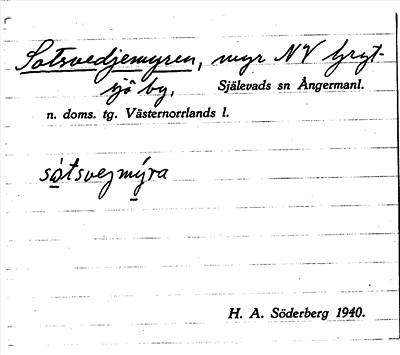 Sotsvedjemyren, myr NV Gryt-
sjö by, Själevads sn Ångermanl.
n. doms. tg. Västernorrlands l.
sòtsvejmýra
H. A. Söderberg 1940.